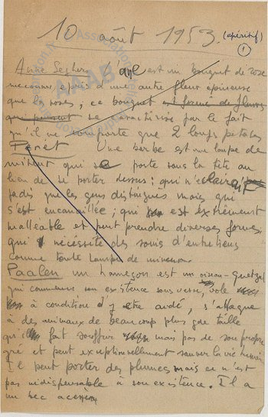 10 août 1953. (apéritif)
1
est un bouquet de rose
méconnu d'une autre fleur épineuse
que les roses, ce bouquet est formé de fleurs
qui se caractérise par le fait
qu'il ne comporte que 2 longs pétales
Péret Une barbe est une lampe de
mineur qui se porte sous la tête au
lieu de se porter dessus : qui n'éclairait
jadis que les gens distingués mais qui
s'est encanaillée, qui est extrêmement
malléable et peut prendre diverses formes
qui nécessite des soins d'entretiens
comme toute lampe de mineurs
Paalen un hameçon est un oiseau-quetzal
qui commence son existence sous
à condition d'y être aidé, s'attaque
à des animaux de beaucoup plus que taille
qu'il fait souffrir mais pas de son propre
gré et peut exceptionnellement sauver la vie humaine
Il peut porter des plumes mais ce n'est
pas indispensable à son existence. Il a
un bec